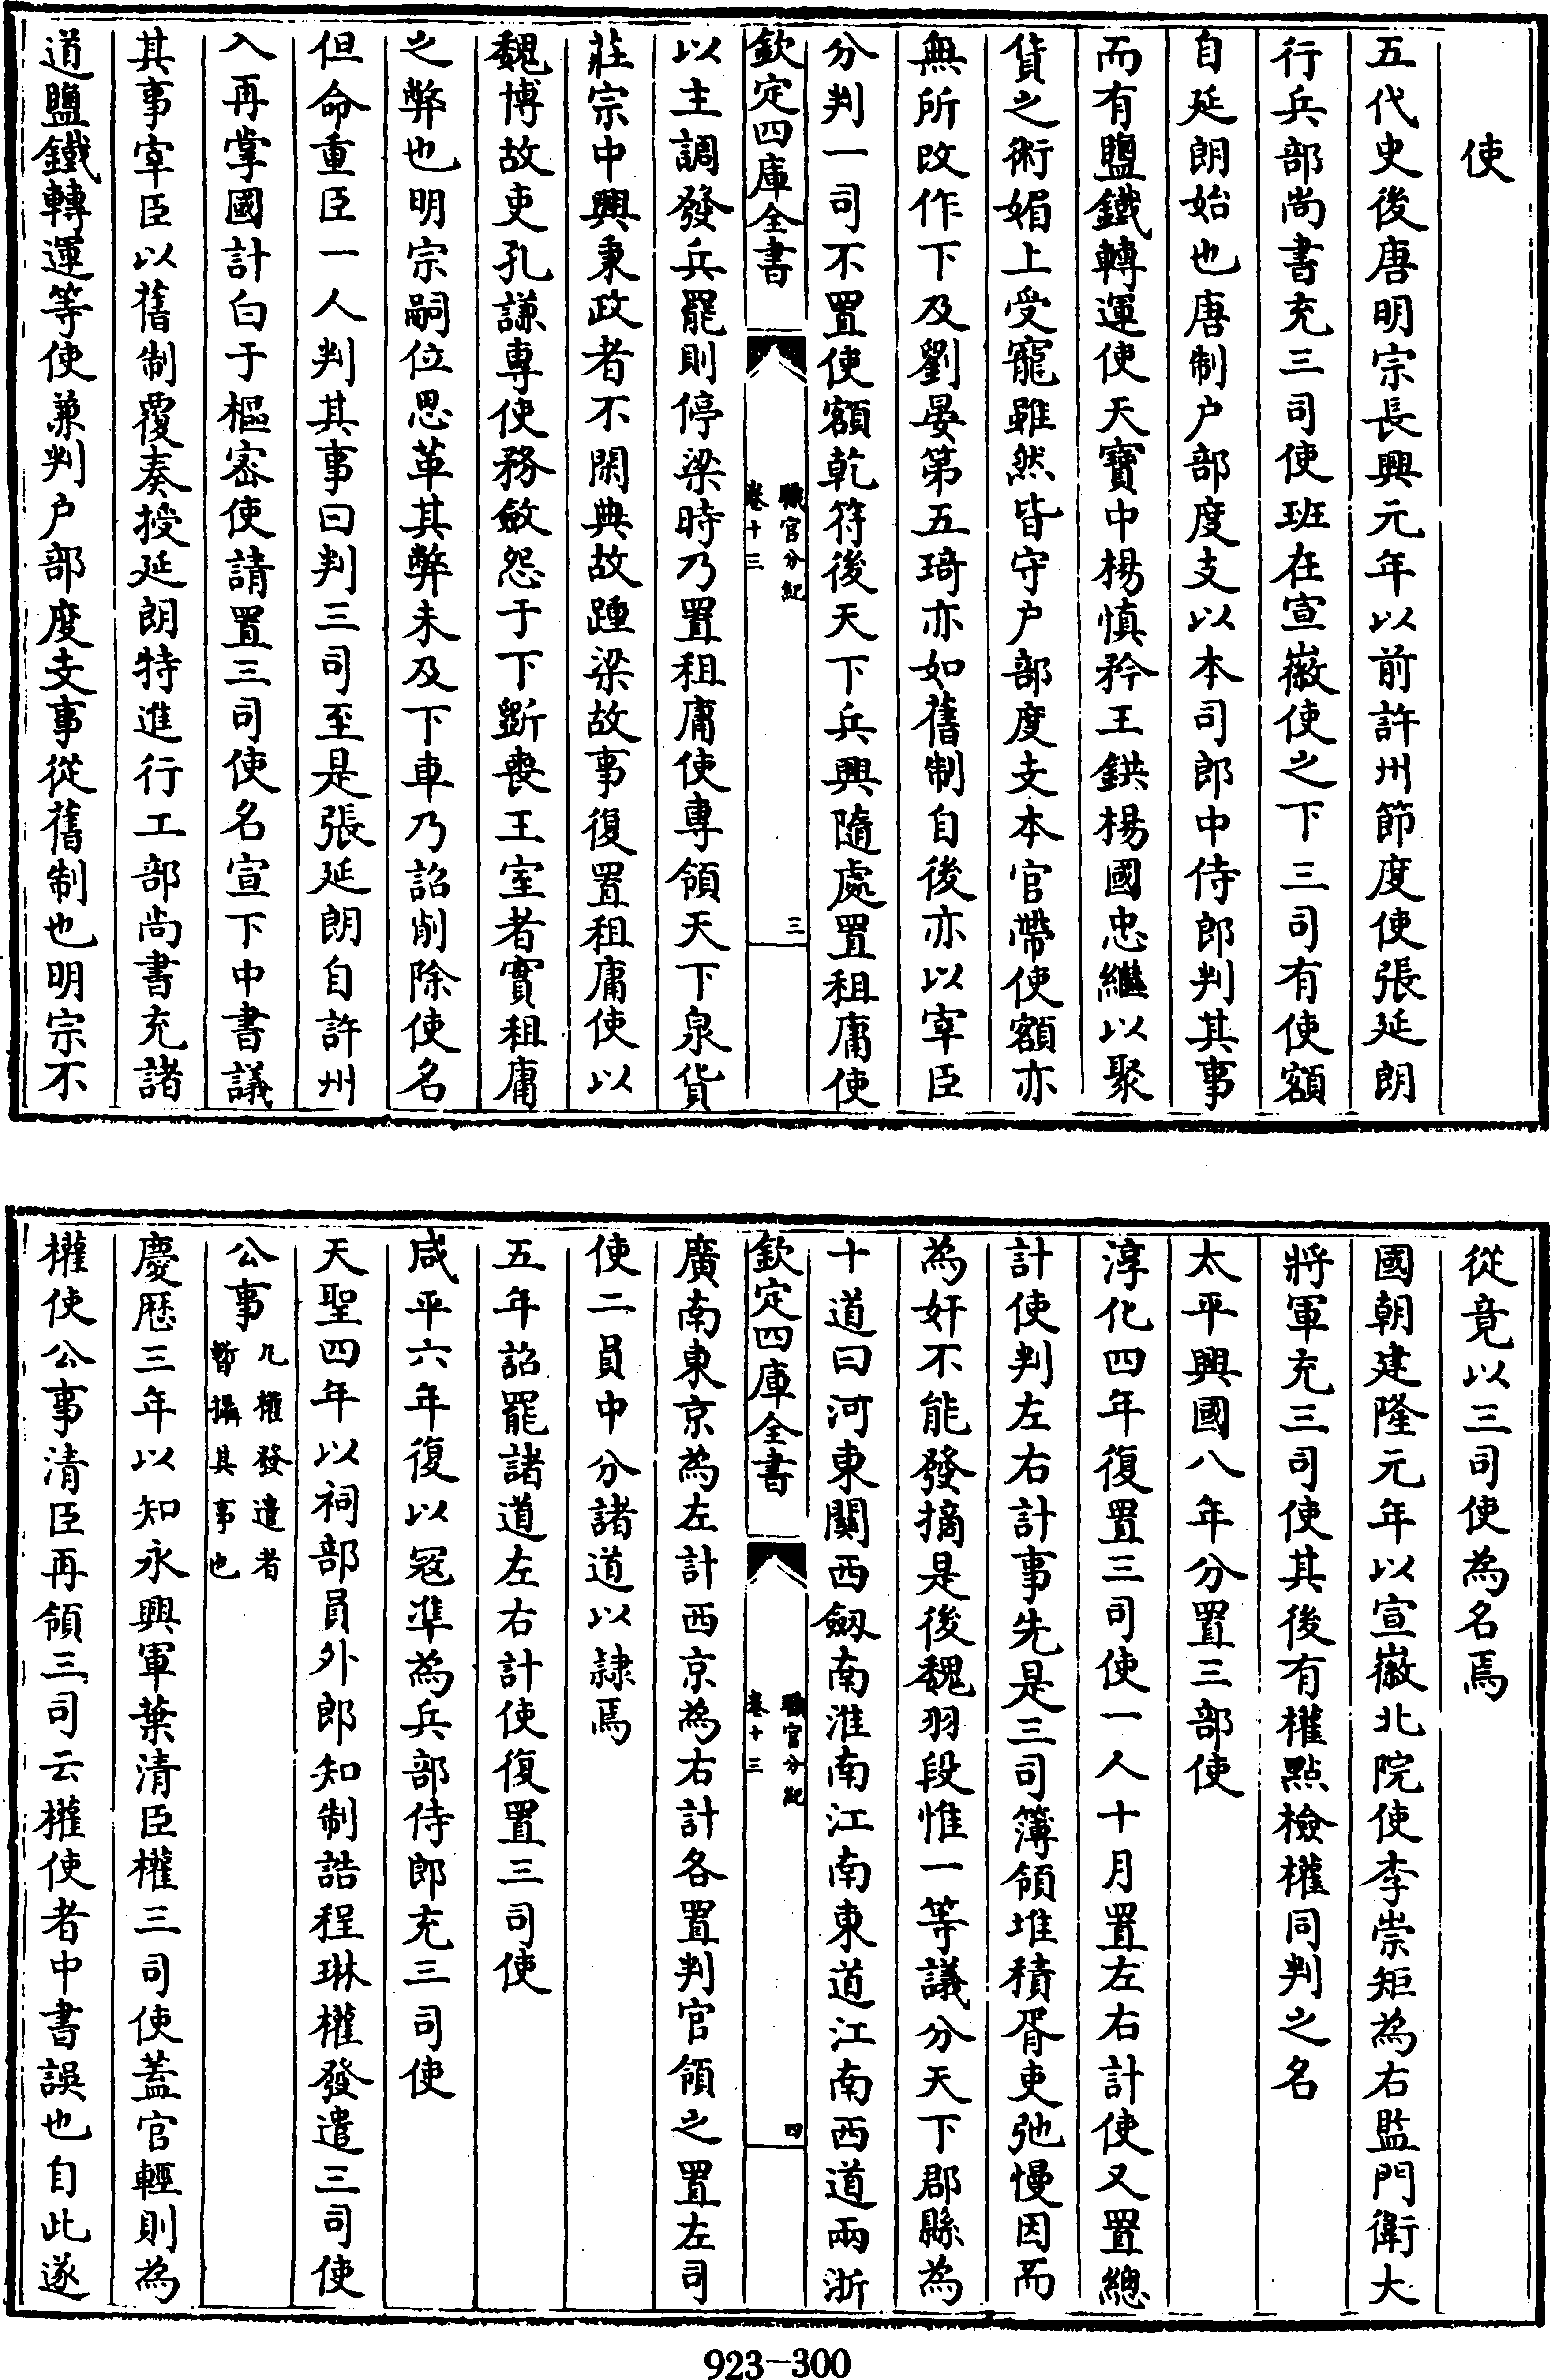 使
五代史後唐明宗長興元年以前許州節度使張延朗
行兵部尚書充三司使班在宣徽使之下三司有使額
自延朗始也唐制户部度支以本司郎中侍郎判其事
而有鹽鐵轉運使天寶中楊慎矜王鉷楊國忠繼以聚
貨之術媚上受寵雖然皆守户部度支本官帶使額亦
無所改作下及劉晏第五琦亦如舊制自後亦以宰臣
分判一司不置使額乾符後天下兵興隨處置租庸使
欽定四庫全書
職官分紀
卷十三
三
以主調發兵罷則停梁時乃置租庸使專領天下泉貨
莊宗中興秉政者不閑典故踵梁故事復置租庸使以
魏博故吏孔謙專使務斂怨于下斵喪王室者實租庸
之弊也明宗嗣位思革其弊未及下車乃詔削除使名
但命重臣一人判其事曰判三司至是張延朗自許州
入再掌國計白于樞宻使請置三司使名宣下中書議
其事宰臣以舊制覆奏授延朗特進行工部尚書充諸
道鹽鐵轉運等使兼判户部度支事從舊制也明宗不
從竟以三司使為名焉
國朝建隆元年以宣徽北院使李崇矩為右監門衛大
將軍充三司使其後有權點檢權同判之名
太平興國八年分置三部使
淳化四年復置三司使一人十月置左右計使又置總
計使判左右計事先是三司簿領堆積胥吏弛慢因而
為奸不能發摘是後魏羽段惟一等議分天下郡縣為
十道曰河東關西劔南淮南江南東道江南西道兩浙
欽定四庫全書
職官分紀
卷十三
四
廣南東京為左計西京為右計各置判官領之置左司
使二員中分諸道以隷焉
五年詔罷諸道左右計使復置三司使
咸平六年復以冦準為兵部侍郎充三司使
天聖四年以祠部員外郎知制誥程琳權發遣三司使
公事凡權發遣者暫攝其事也
慶歷三年以知永興軍葉清臣權三司使蓋官輕則為
權使公事清臣再領三司云權使者中書誤也自此遂
923-300